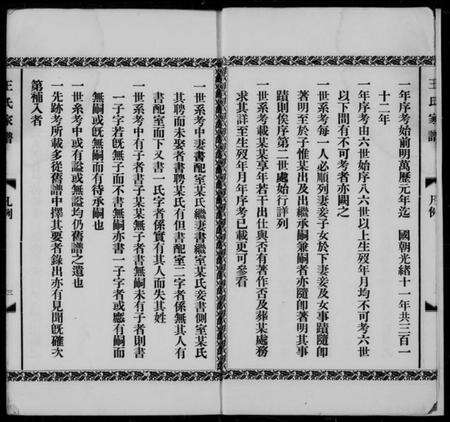 王氏家譜
凡例
一年序考始前明萬歷元年迄　國朝光緒十一年共三百一
十二年
一年序考由六世始序八六世以上生歿年月均不可考六世
以下間有不可考者亦闕之
一世系考每一人必順列妻妾子女於下妻妾及女事蹟隨卽
著明至於子惟某出及出繼承嗣兼嗣者亦隨明著明其事
蹟則俟序第二世處始行詳列
一世系考載某某享年若干出仕與否有著作否及葬某處務
求其詳至生歿年月年序考已載更可參看
一世系考中妻書配室某氏繼妻書繼室某氏妾書側室某氏
其聘而未娶者書聘某氏有但書配室二字者係無其人有
書配室而下又書一氏字者係實有其人而失其姓
一世系考中有子者書子某某無子者書無嗣未有子者則書
一子字若旣無子而不書無嗣亦書一子字者或應有嗣而
無嗣或旣無嗣而有待承嗣也
一世系考中或有諡或無諡均仍舊譜之遺也
一先跡考所載多從舊譜中擇其要者錄出亦有見聞旣確次
第補入者
王氏家譜
凡例
三